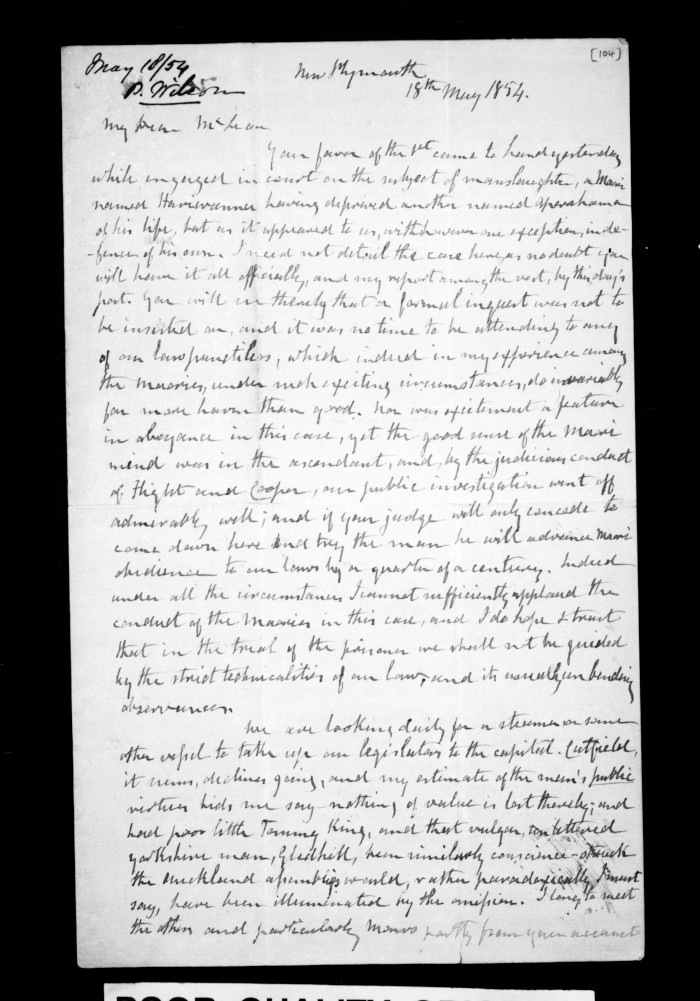 [104]
May 18/54
P. Wilson
New Plymouth
18th May 1854.
My Dear McLean
Your favor of the 1st came to hand yesterday
while engaged in court on the subject of manslaughter, a Maori
named having deprived another named
of his life, but as it appeared to us, with however one exception, in de-
-fence of his own. I need not detail the case here, as no doubt you
will have it all officially, and my report among the rest, by this day's
post. You will see thereby that a formal inquest was not to
be insisted on, and it was no time to be attending to any
of our law punctilios, which indeed in my experience among
the Maories, under such exciting circumstances, do invariably
far more harm than good. Nor was excitement a feature
in abeyance in this case, yet the good sense of the Maori
mind was in the ascendant, and, by the judicious conduct
of Flight and Cooper, our public investigation went off
admirably well; and if your judge will only concede to
come down here and try the man he will advance Maori
obedience to our laws by a quarter of a century. Indeed
under all the circumstances I cannot sufficiently applaud the
conduct of the Maories in this case, and I do hope & trust
that in the trial of the prisoner we shall not be guided
by the strict technicalities of our law, and its usually unbending
observances.
We are looking daily for a steamer or some
other vessel to take up our legislators to the capital. Cutfield,
it seems, declines going, and my estimate of the man's public
virtues bids me say nothing of value is lost thereby; and
had poor little Tommy King, and that vulgar, unlettered
Yorkshire man, Gledhill, been similarly conscience-struck
the Auckland assemblies would, rather paradoxically, I must
say, have been illuminated by the omission. I long to meet
the others and particularly partly from your account
POOR QUALITY